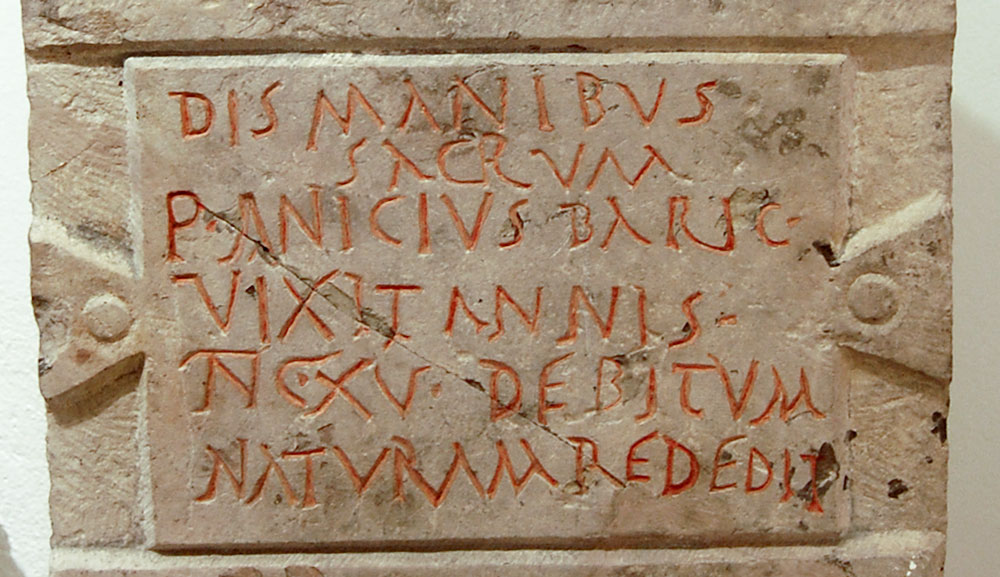 DIS MANIBVS
SACRVM
P·ANICIVS BARIC·
VIXIT ANNIS·
NC·XV· DEBITVM
NATVRAM REDEDIT